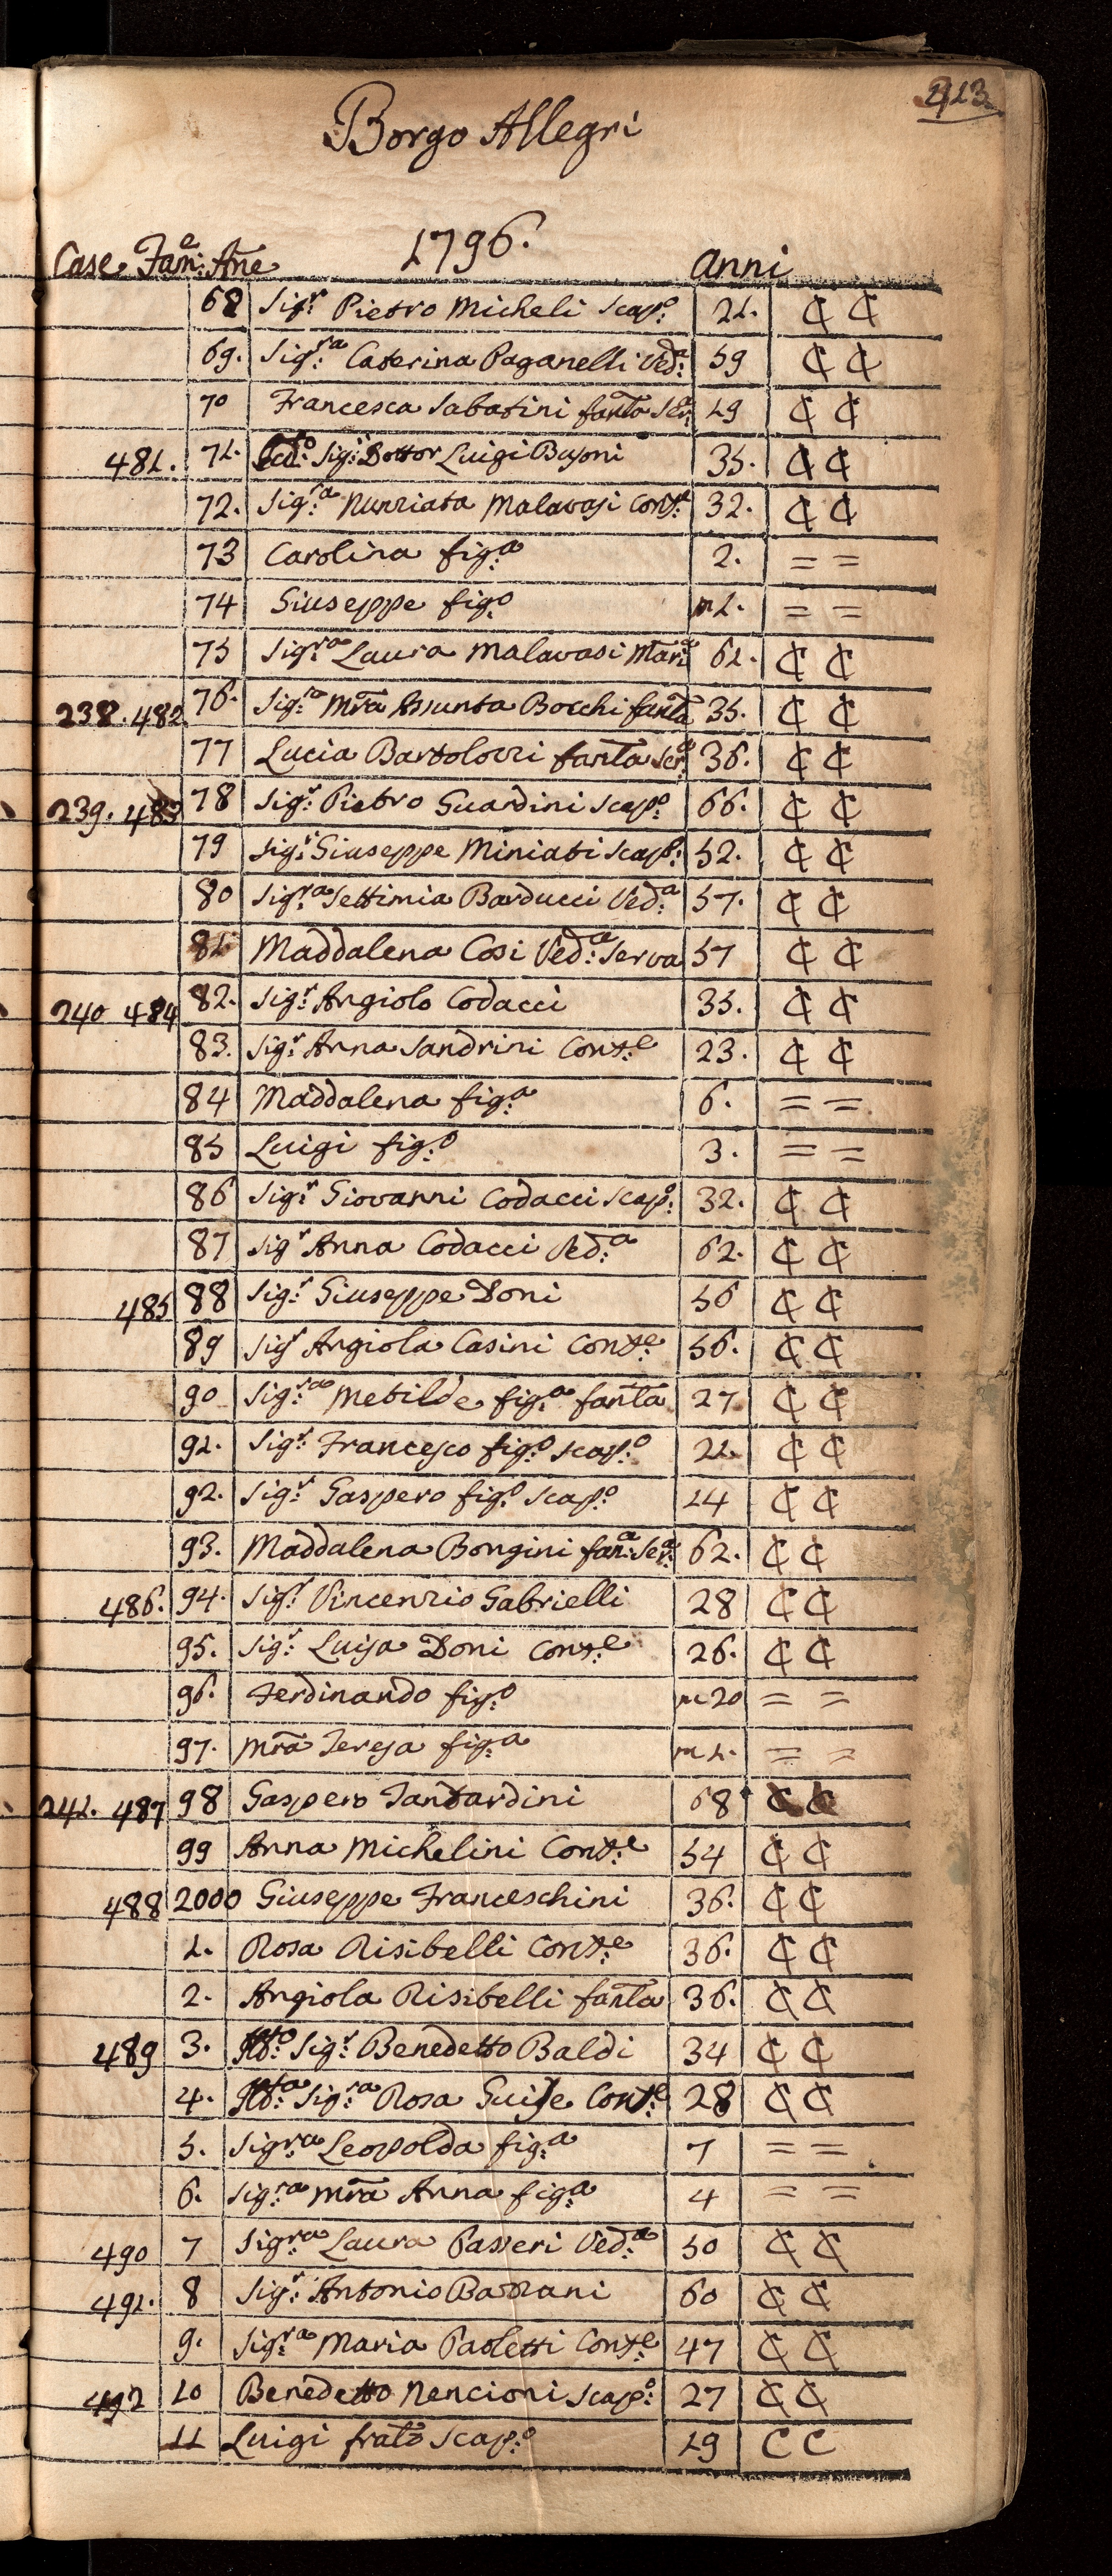 213.
Borgo Allegri
1796.
Case. Fam.e Ane anni
68 Sig.r Pietro Micheli scap.o 21. C C
69. Sig.ra Caterina Paganelli Ved.a 59 C C
70 Francesca Sabatini fanta Ser.a 19 C C
481. 71. Sig.r Dottor Luigi Busoni 35. C C
72. Sig.ra Nunziata Malavasi Cons.e 32. C C
73 Carolina fig.a 2. = =
74 Giuseppe fig.o m1. = =
75 Sig.ra Laura Malavasi 61. C C
238. 482 76. Sig.ra Mra Assunta Bocchi fanta 35. C C
77 Lucia Bartolozzi fanta ser.a 36. C C
239. 483 78 Sig.r Pietro Guardini scap.o 66. C C
79 Sig.r Giuseppe Miniati scap.o 52. C C
80 Sig.ra Settimia Barducci Ved.a 57. C C
81 Maddalena Cosi Ved.a Serva 57 C C
240 484 82. Sig.r Angiolo Codacci 35. C C
83. Sig.r Anna Sandrini Cons.e 23. C C
84 Maddalena fig.a 6. = =
85 Luigi fig.o 3. = =
86 Sig.r Giovanni Codacci scap.o 32. C C
87 Sig.r Anna Codacci Ved.a 62. C C
485 88 Sig.r Giuseppe Doni 56 C C
89 Sig.r Angiola Casini Cons.e 56. C C
90 Sig.ra Metilde fig.a fanta 27 C C
91. Sig.r Francesco fig.o scap.o 21. C C
92. Sig.r Gaspero fig.o scap.o 14 C C
93. Maddalena Bongini fan.a Ser.a 62. C C
486. 94. Sig.r Vincenzio Gabrielli 28 C C
95. Sig.r Luisa Doni Cons.e 26. C C
96. Ferdinando fig.o m 20 = =
97. Mra Teresa fig.a m 1. = =
241. 487 98 Gaspero Tantardini 68 C C
99 Anna Michelini Cons.e 54 C C
488 2000 Giuseppe Franceschini 36. C C
1. Rosa Risibelli Cons.e 36. C C
2. Angiola Risibelli fanta 36. C C
489 3. Sig.r Benedetto Baldi 34 C C
4. Sig.ra Rosa Cons.e 28 C C
5. Sig.ra Leopolda fig.a 7 = =
6. Sig.ra Mra Anna fig.a 4 = =
490 7 Sig.ra Laura Passeri Ved.a 50 C C
491. 8 Sig.r Antonio Bazzani 60 C C
9. Sig.ra Maria Paoletti Cons.e 47 C C
492 10 Benedetto Nencioni scap.o 27 C C
11 Luigi frato scap.o 19 C C